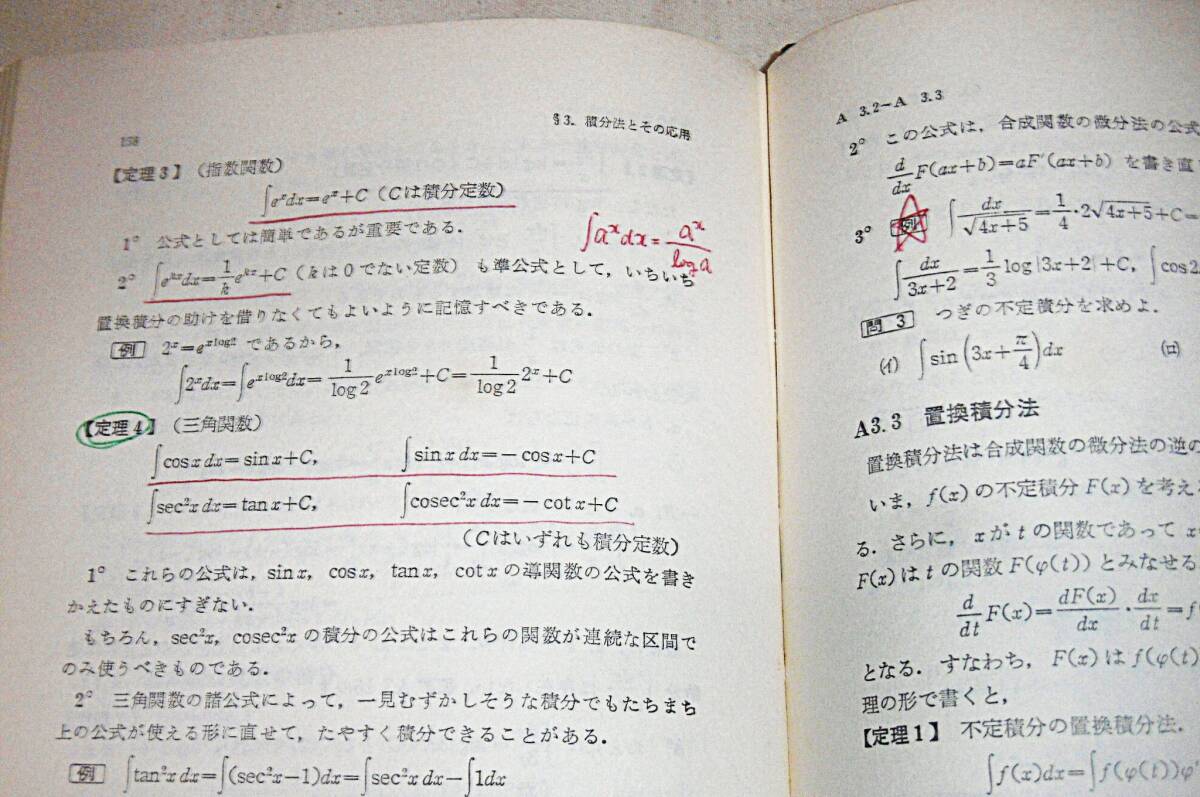 158
§3. 積分法とその応用
【定理3】(指数関数)
∫eˣdx=eˣ+C (Cは積分定数)
1° 公式としては簡単であるが重要である.
∫aˣdx=aˣ/log a
2° ∫eᵏˣdx=1/k eᵏˣ+C (kは0でない定数) も準公式として,いちいち
置換積分の助けを借りなくてもよいように記憶すべきである.
例 2ˣ=eˣˡᵒᵍ² であるから,
∫2ˣdx=∫eˣˡᵒᵍ²dx=1/log2 eˣˡᵒᵍ²+C=1/log2 2ˣ+C
【定理4】(三角関数)
∫cosx dx=sinx+C, ∫sinx dx=−cosx+C
∫sec²x dx=tanx+C, ∫cosec²x dx=−cotx+C
(Cはいずれも積分定数)
1° これらの公式は,sinx, cosx, tanx, cotxの導関数の公式を書き
かえたものにすぎない.
もちろん,sec²x, cosec²xの積分の公式はこれらの関数が連続な区間で
のみ使うべきものである.
2° 三角関数の諸公式によって,一見むずかしそうな積分でもたちまち
上の公式が使える形に直せて,たやすく積分できることがある.
例 ∫tan²x dx=∫(sec²x−1)dx=∫sec²x dx−∫1dx
A 3.2−A 3.3
2° この公式は,合成関数の微分法の公式
d/dx F(ax+b)=aF′(ax+b) を書き直
3° 例 ∫dx/√(4x+5)=1/4·2√(4x+5)+C=
∫dx/(3x+2)=1/3 log|3x+2|+C, ∫cos2
問 3 つぎの不定積分を求めよ.
(イ) ∫sin(3x+π/4)dx (ロ)
A3.3 置換積分法
置換積分法は合成関数の微分法の逆の
いま,f(x)の不定積分F(x)を考え
る.さらに,xがtの関数であってx
F(x)はtの関数F(φ(t))とみなせる
d/dt F(x)=dF(x)/dx·dx/dt=f
となる.すなわち,F(x)はf(φ(t))
理の形で書くと,
【定理1】 不定積分の置換積分法.
∫f(x)dx=∫f(φ(t))φ′